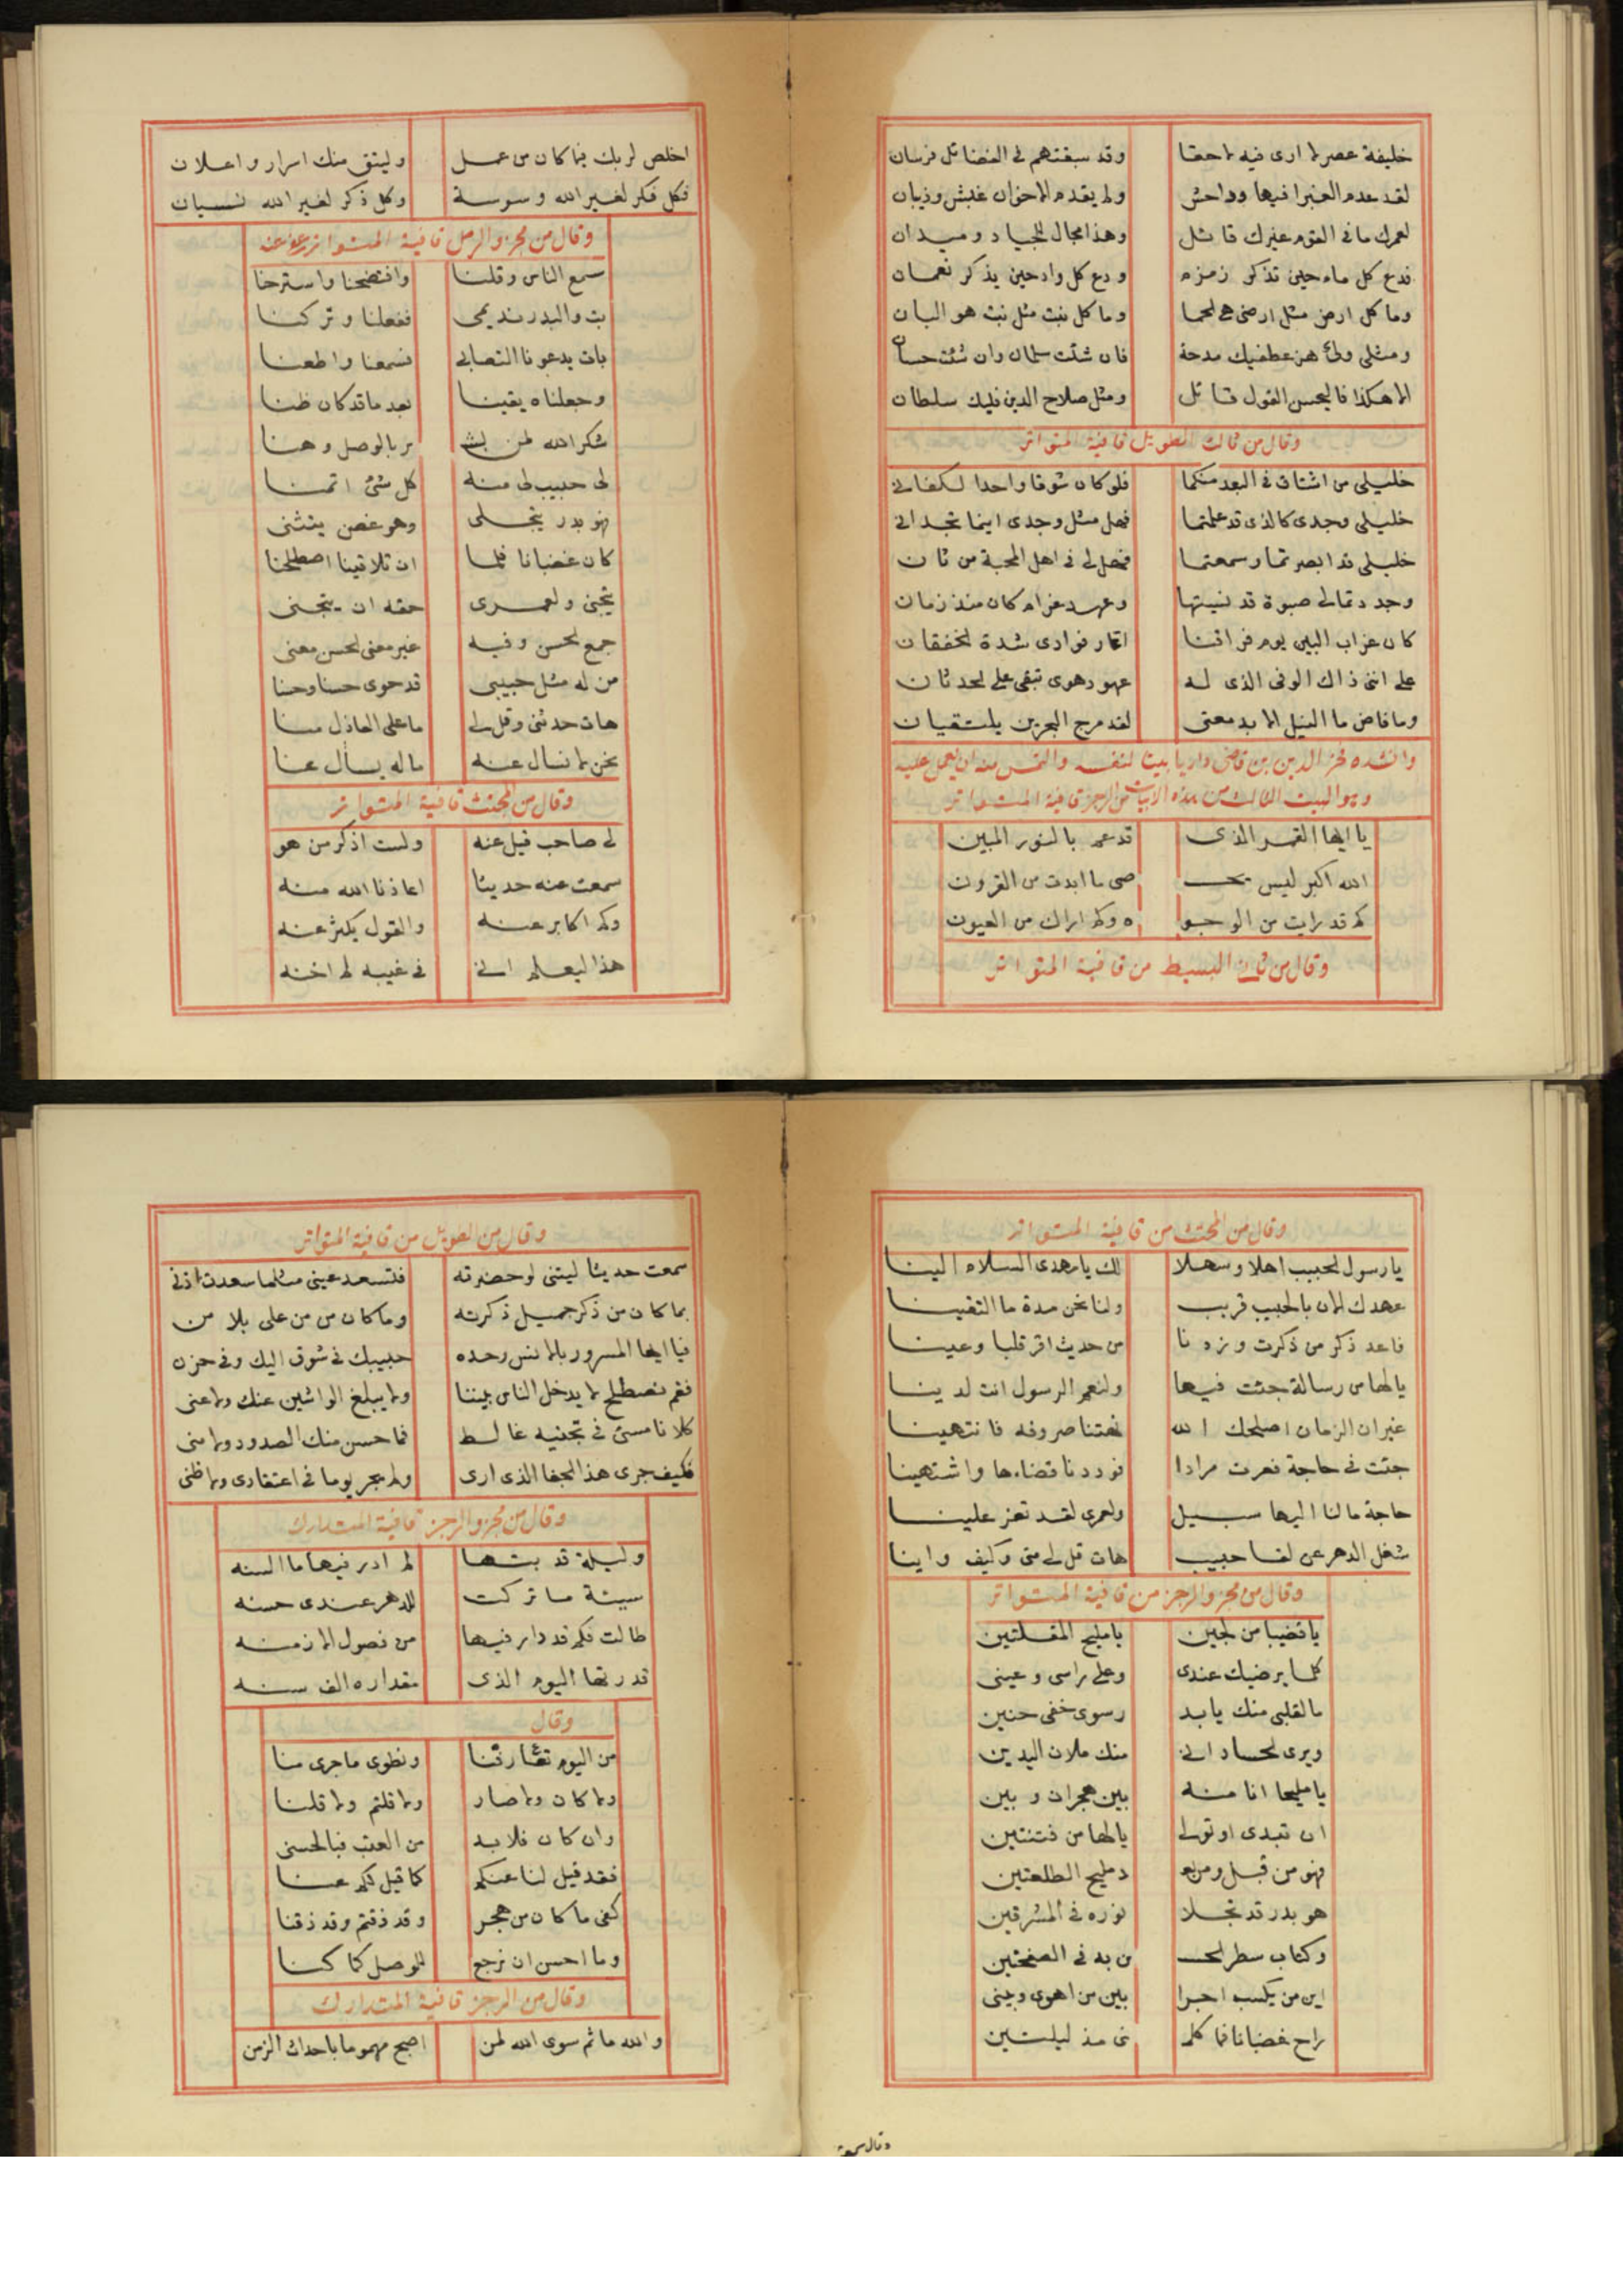 خليفة عصر لا ارى فيه لاحقا وقد سبقتهم فى الفضائل فرسان
لقد عدم الغبرا فيها وداحش ولم يقدم الاخوان غبش وذبيان
لعمرك ما فى القوم غيرك قائل وهذا مجال للجياد وميدان
فدع كل ماء حين تذكر زمزم ودع كل واد حين يذكر نعمان
وما كل ارض مثل ارضى هى لحما وما كل نبت مثل نبت هو البان
ومثلى ولى هز عطفيك مدحة فان شئت سلمان وان شئت حسان
الا هكذا فاليحسن القول قائل ومثل صلاح الدين فليك سلطان
وقال من ثالث الطويل قافية المتواتر
خليلى من اشتاق فى البعد منكما فلو كان شوقا واحدا لكفانى
خليلى وجدى كالذى قد علمتما فهل مثل وجدى اينما تجدانى
خليلى قد ابصرتما وسمعتما فهل لى فى اهل المحبة من ثان
وجددتما لى صبوة قد نسيتها وعهد غرام كان منذ زمان
كان غراب البين يوم فراقنا اعار فوادى شدة لخفقان
على اننى ذاك الوفى الذى له عهود هوى تبقى على لحدثان
وما فاض ما النيل الا بدمعتى لقد مرج البحرين يلتقيان
وانشده فخر الدين بن قاضى داريا بيتا لنفسه والتمس منه ان يعمل عليه
وهو البيت الثالث من هذه الابيات من الرجز قافية المتواتر
يا ايها القمر الذى قد عم بالنور المبين
الله اكبر ليس يحـ ـصى ما ابدت من القرون
كم قد رايت من الوجو ه وكم اراك من العيون
وقال من ثان البسيط من قافية المتواتر
اخلص لربك فيما كان من عمل وليتق منك اسرار واعلان
فكل فكر لغير الله وسوسة وكل ذكر لغير الله نسيان
وقال من مجزو الرمل قافية المتواتر
سمع الناس وقلنا وافتضحنا واسترحنا
بت والبدر نديمى ففعلنا وتركنا
بات يدعونا التصابى فسمعنا واطعنا
وجعلناه يقينا بعد ما قد كان ظنا
شكر الله لمن بشـ ـر بالوصل وهنا
لى حبيب لى منه كل شئ اتمنا
فهو بدر يتجلى وهو غصن يتثنى
كان غضبانا فلما ان تلاقينا اصطلحنا
يتجنى ولعمرى حقه ان يتجنى
جمع لحسن وفيه غير معنى لحسن معنى
من له مثل حبيبى قد حوى حسنا وحسنا
هات حدثنى وقل لى ما على العاذل منا
نحن لا نسال عنه ما له يسأل عنا
وقال من المجتث قافية المتواتر
لى صاحب قيل عنه ولست اذكر من هو
سمعت عنه حديثا اعاذنا الله منه
وكم اكابر عنه والقول يكثر عنه
هذا ليعلم انى فى غيبه لم اخنه
وقال من المجتث من قافية المتواتر
يا رسول لحبيب اهلا وسهلا لك يا مهدى السلام الينا
عهدك الان بالحبيب قريب ولنا نحن مدة ما التقينا
فاعد ذكر من ذكرت وزدنا من حديث اقر قلبا وعينا
يا لها من رسالة جئت فيها ولنعم الرسول انت لدينا
غير ان الزمان اصلحك الله نهتنا صروفه فانتهينا
جئت فى حاجة فعزت مرادا فوددنا قضاءها واشتهينا
حاجة ما لنا اليها سبيل ولعمرى لقد تعز علينا
شغل الدهر عن لقا حبيب هات قل لى متى وكيف واينا
وقال من مجزو الرجز من قافية المتواتر
يا قضيبا من لجين يا مليح المقلتين
كلما يرضيك عندى وعلى راسى وعينى
ما لقلبى منك يا بد رسوى خفى حنين
ويرى لحساد انى منك ملان اليدين
يا مليحا انا منه بين هجران وبين
ان تبدى او تولى يا لها من فتنتين
فهو من قبل ومن بعـ د مليح الطلعتين
هو بدر قد تجلا نوره فى المشرقين
وكتاب سطر الحسـ ن به فى الصفحتين
اين من يكسب اجرا بين من اهوى وبينى
راح غضبانا فما كلمـ نى مذ ليلتين
وقال سمعت
وقال من الطويل من قافية المتواتر
سمعت حديثا ليتنى لو حضرته فتسعد عينى مثلما سعدت اذنى
بما كان من ذكر جميل ذكرته وما كان من من على بلا من
فيا ايها المسرور بالانس وحده حبيبك فى شوق اليك وفى حزن
فقم نصطلح لا يدخل الناس بيننا ولا يبلغ الواشين عنك ولا عنى
كلانا مسئ فى تجنيه غالط فما حسن منك الصدود ولا منى
فكيف جرى هذا الجفا الذى ارى ولم يجر يوما فى اعتقادى ولا ظنى
وقال من مجزو الرجز قافية المتدارك
وليلة قد بتها لم ادر فيها ما السنه
سيئة ما تركت للدهر عندى حسنه
طالت فكم قد دار فيها من فصول الازمنه
قدرتها اليوم الذى مقداره الف سنه
وقال
من اليوم تعارفنا ونطوى ما جرى منا
ولا كان ولا صار ولا قلتم ولا قلنا
وان كان فلا بد من العتب فبالحسنى
فقد قيل لنا عنكم كما قيل لكم عنا
كفى ما كان من هجر وقد ذقتم وقد ذقنا
وما احسن ان نرجع للوصل كما كنا
وقال من الرجز قافية المتدارك
والله ما ثم سوى الله لمن اصبح مهموما باحداث الزمن